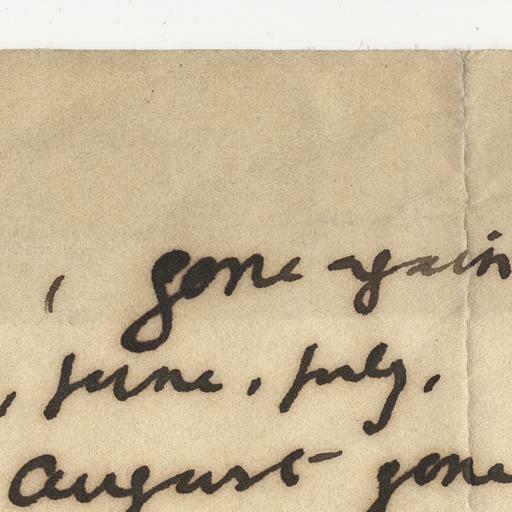 , gone again
, june, july,
august gone